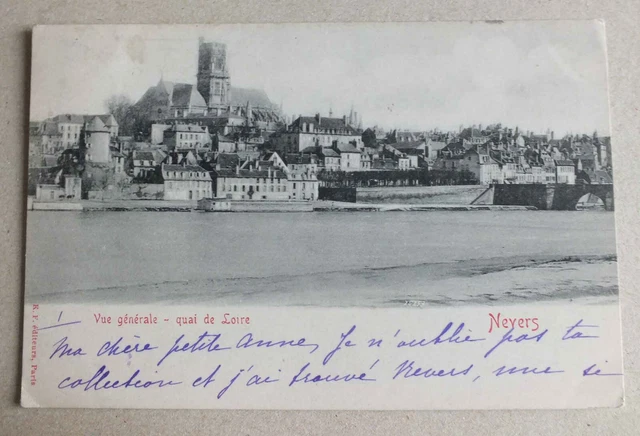 Vue générale - quai de Loire
Nevers
K. F. éditeurs, Paris
1
Ma chère petite Anne, Je n'oublie pas ta
collection et j'ai trouvé Nevers, une si